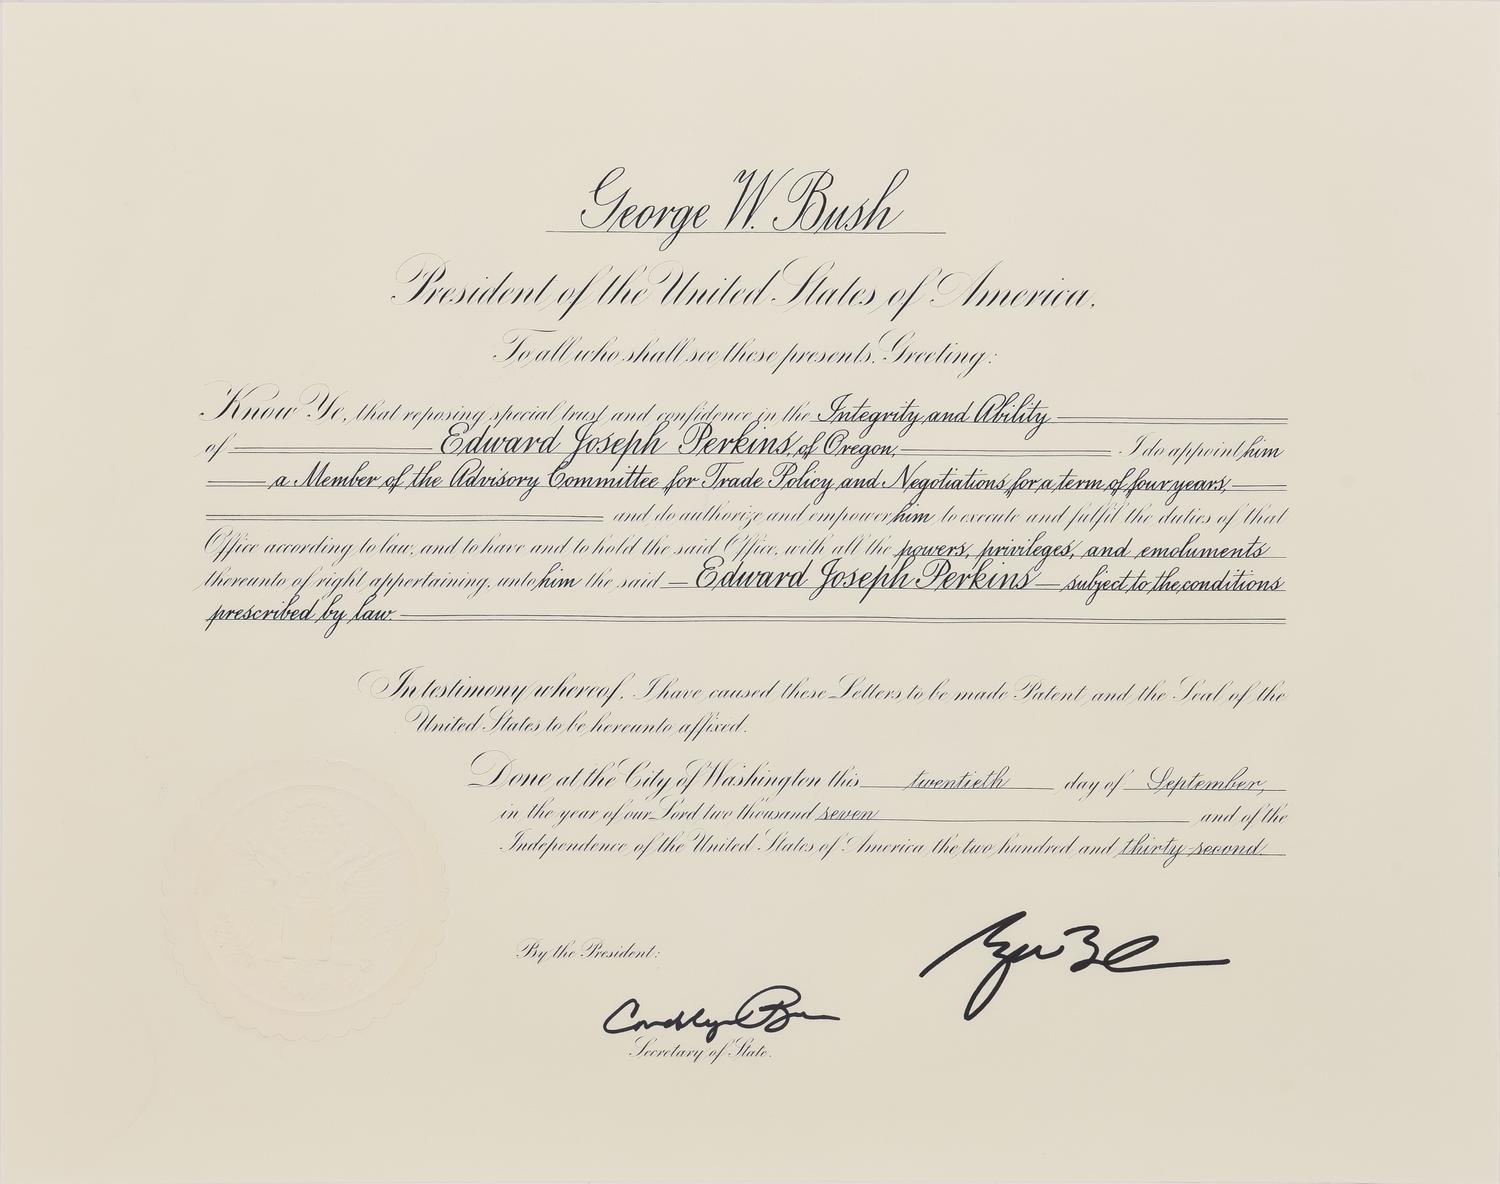 George W. Bush
President of the United States of America.
To all who shall see these presents, Greeting:
Know Ye, that reposing special trust and confidence in the Integrity and Ability
of Edward Joseph Perkins, of Oregon, I do appoint him
a Member of the Advisory Committee for Trade Policy and Negotiations for a term of four years,
and do authorize and empower him to execute and fulfil the duties of that
Office according to law, and to have and to hold the said Office, with all the powers, privileges, and emoluments
thereunto of right appertaining, unto him the said Edward Joseph Perkins subject to the conditions
prescribed by law.
In testimony whereof, I have caused these Letters to be made Patent and the Seal of the
United States to be hereunto affixed.
Done at the City of Washington this twentieth day of September,
in the year of our Lord two thousand seven and of the
Independence of the United States of America the two hundred and thirty-second.
By the President:
Secretary of State.